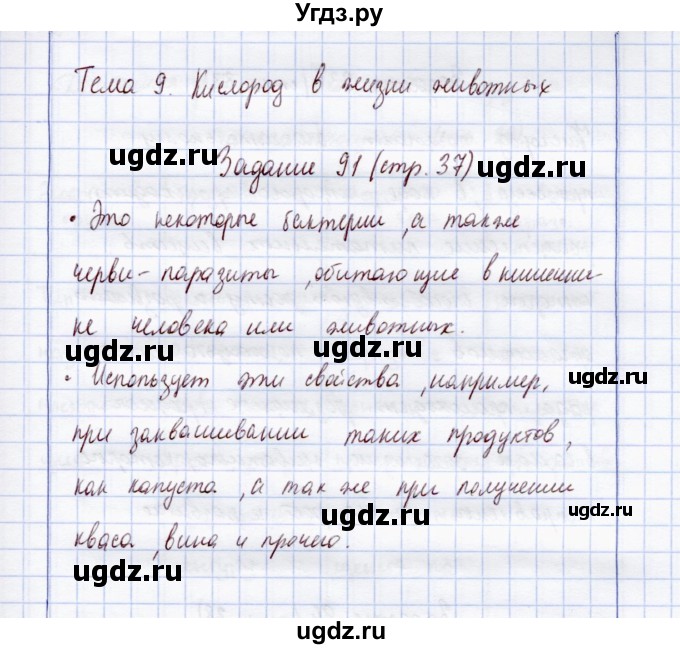 Угдз.ру
Тема 9. Кислород в жизни животных
Задание 91 (стр. 37)
ugdz.ru ugdz.ru
• Это некоторые бактерии, а также
черви-паразиты, обитающие в кишечни-
ugdz.ru
не человека или животных.
ugdz.ru ugdz.ru
• Использует эти свойства, например,
ugdz.ru
при заквашивании таких продуктов,
ugdz.ru
как капуста, а так же при получении
ugdz.ru
кваса, вина и прочего.
ugdz.ru
ugdz.ru